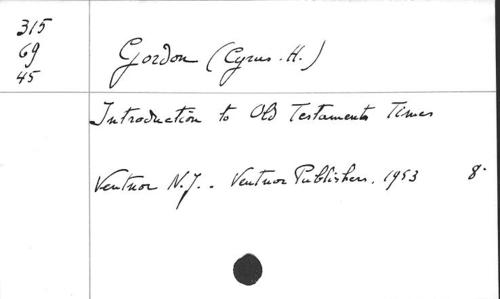 315
69
45
Gordon (Cyrus. H.)
Introduction to Old Testaments Times
Ventnor N.J. - Ventnor Publishers, 1953 8.